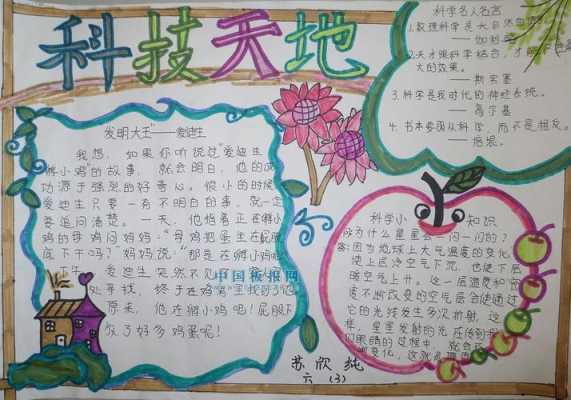 科技天地
发明大王"——爱迪生
我想，如果你听说过"爱迪生
孵小鸡"的故事，就会明白，他的成
功源于强烈的好奇心。很小的时候
爱迪生只要一有不明白的事，就一定
要追问清楚。一天，他指着正在孵小
鸡的母鸡问妈妈："母鸡把蛋坐在屁股
底下干吗？"妈妈说："那是在孵小鸡
爱迪生突然不见
处寻找，终于在鸡窝里找到了他
原来，他在孵小鸡呢！屁股下
放了好多鸡蛋呢！
中国板报网
苏欣纯
六（3）
科学名人名言
1.数理科学是大自
——伽利略
2.天才跟科学结合，才
大的效果。
——斯宾塞
3.科学是我时代的神经系统。
——高尔基
4.书本要跟从科学，而不是相反。
——培根。
科学小知识
问为什么星星会一闪一闪的？
答：因为地球上大气温度的变化
使上层冷空气下沉，也使下层
暖空气上升。这一层温度和密
度不断改变的空气层会使通过
它的光线发生多次折射，这
样，星星发射的光在传到我
们眼睛的过程中，就会
变化，这就